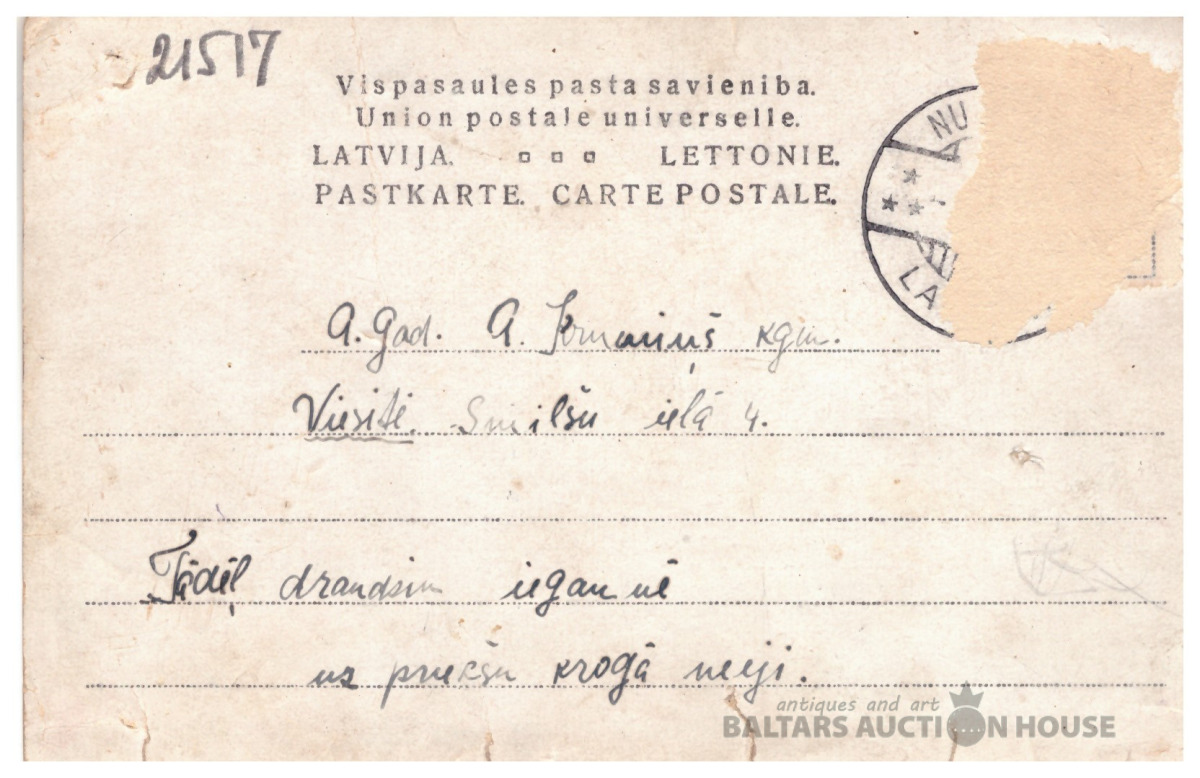 21517
Vispasaules pasta savieniba.
Union postale universelle.
LATVIJA. LETTONIE.
PASTKARTE. CARTE POSTALE.
NU
LA
A. God. A. kgm.
Viesitē. Smilšu ielā 4.
Tādēļ iegaumē
uz priekšu krogā neeji.
antiques and art
BALTARS AUCTION HOUSE